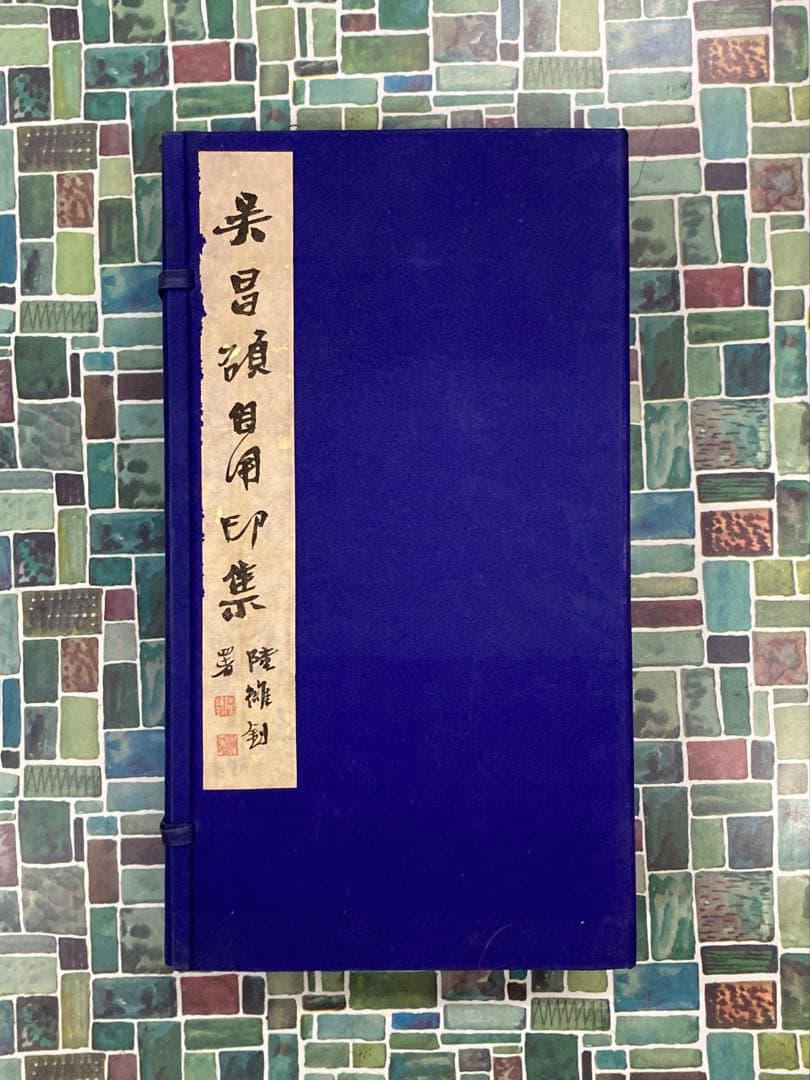 吴昌碩自用印集
陸維釗
署